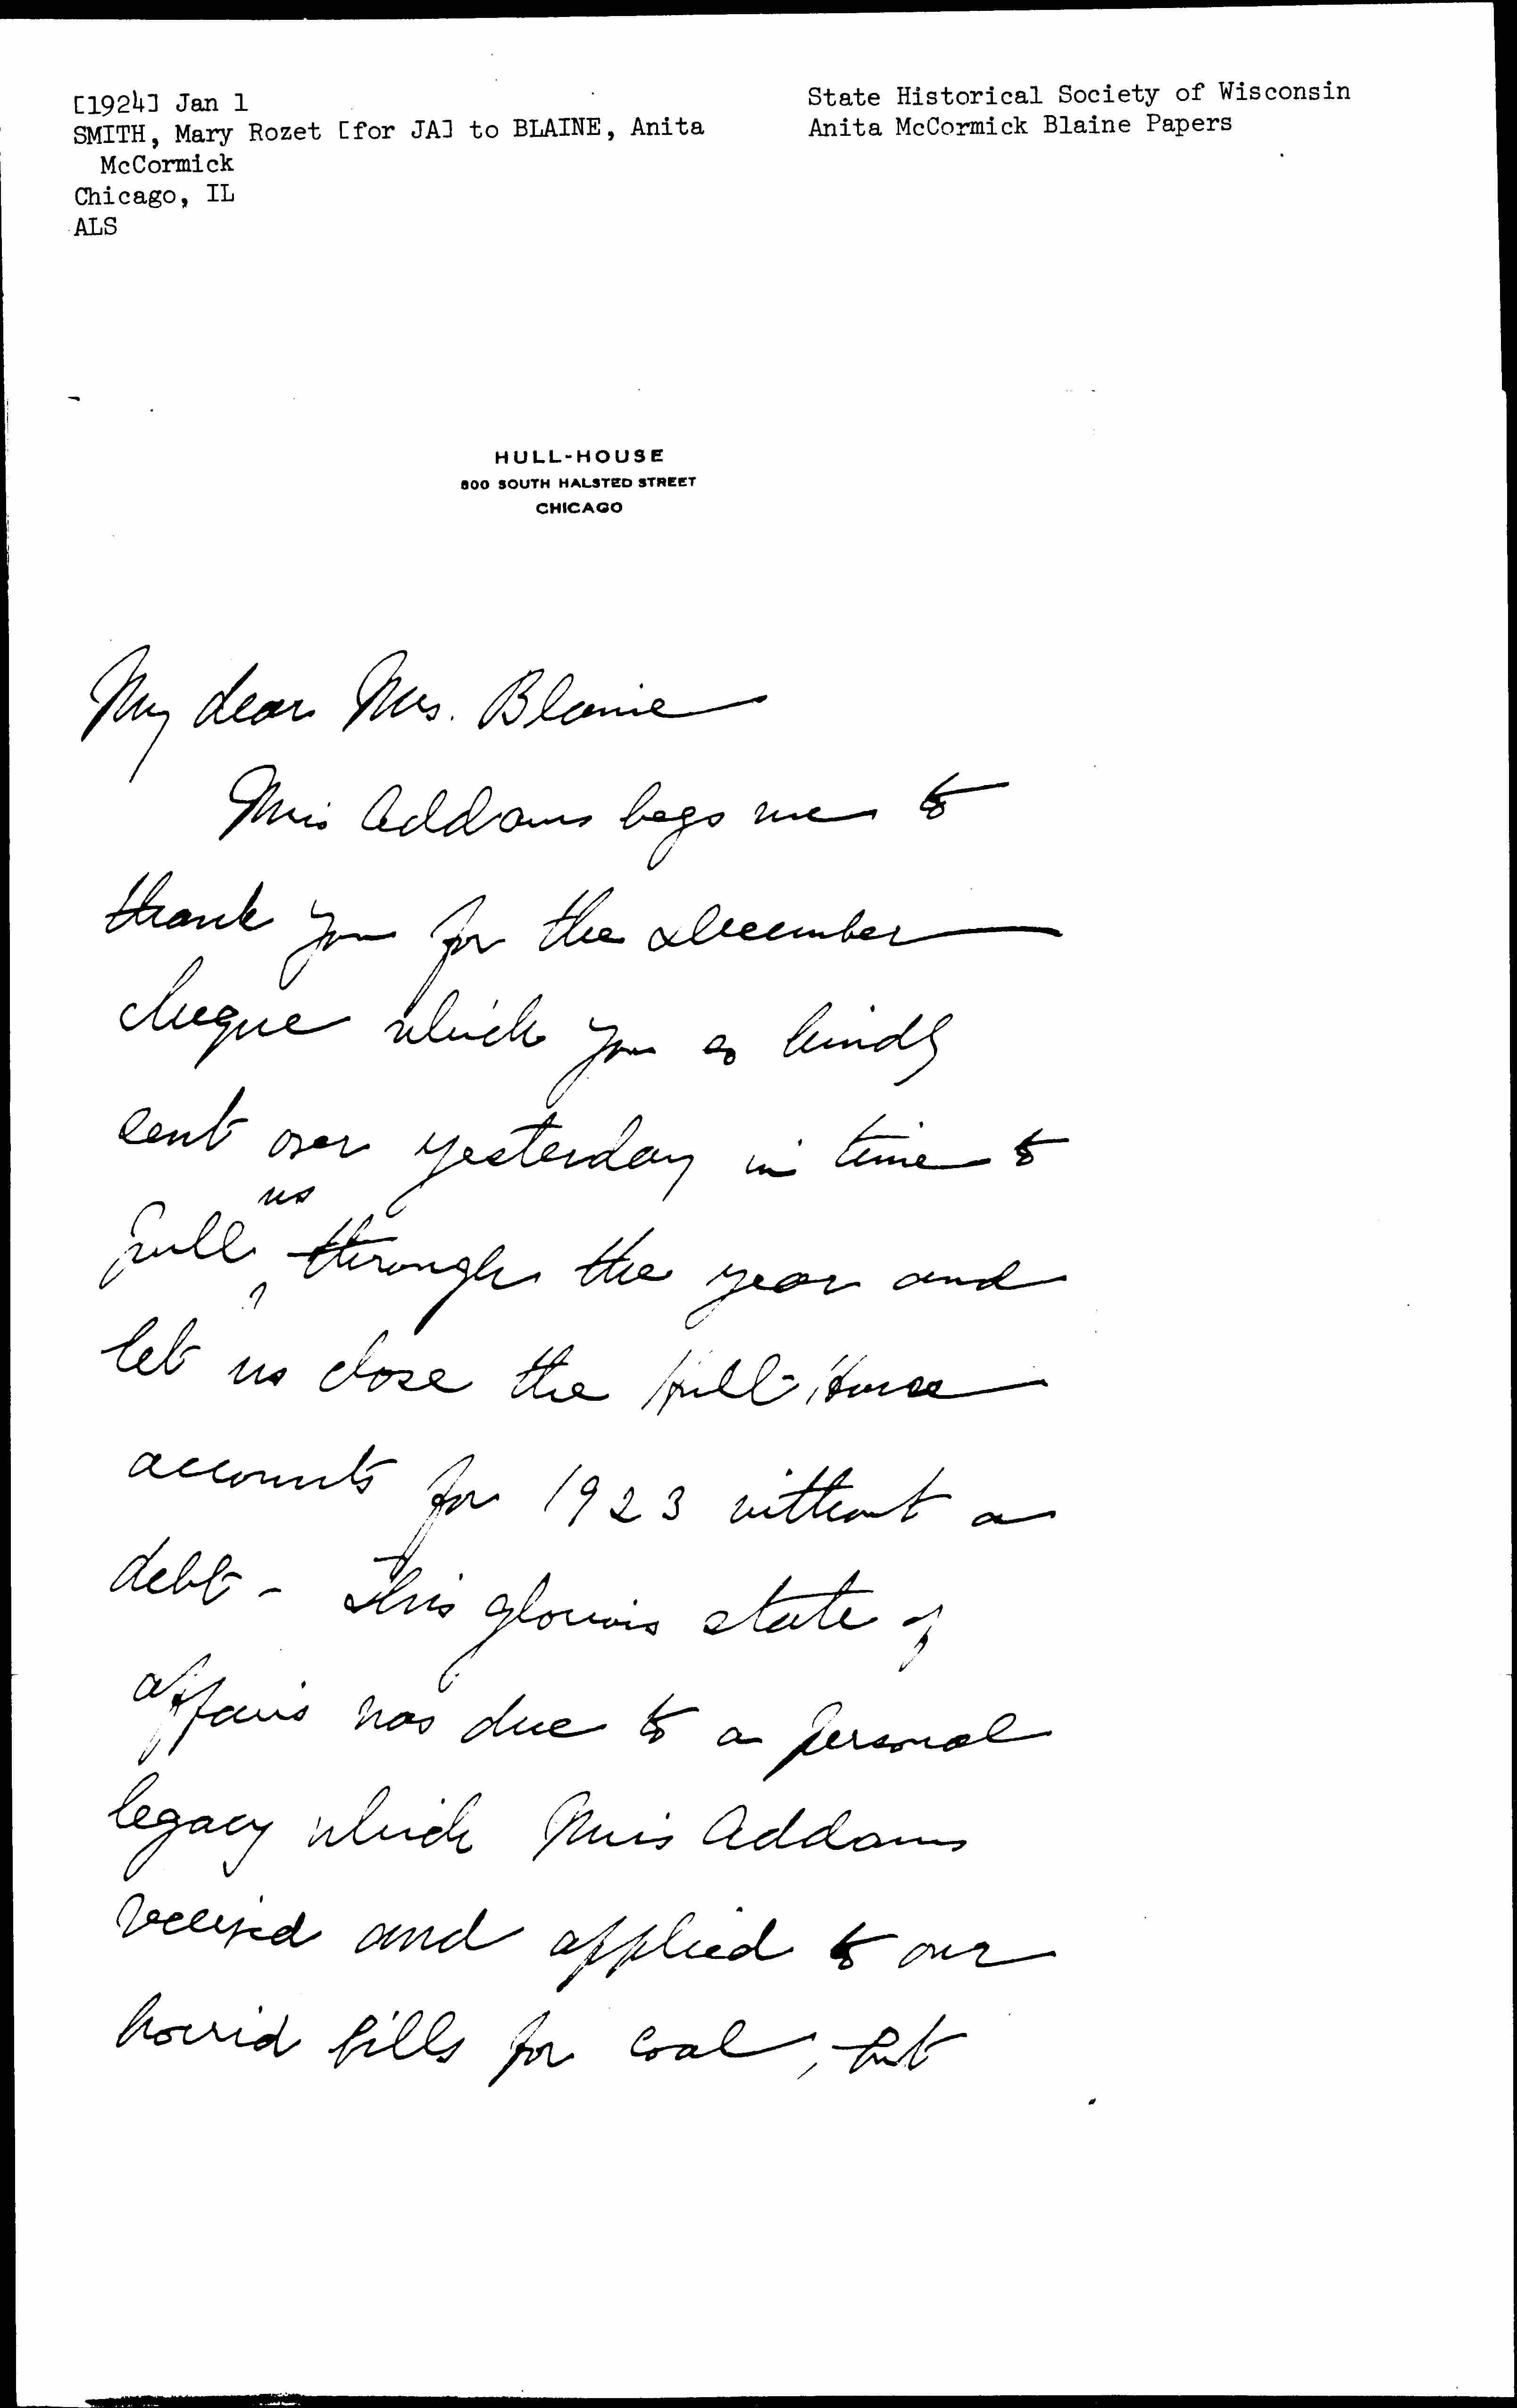 [1924] Jan 1
SMITH, Mary Rozet [for JA] to BLAINE, Anita
McCormick
Chicago, IL
ALS
State Historical Society of Wisconsin
Anita McCormick Blaine Papers
HULL-HOUSE
800 SOUTH HALSTED STREET
CHICAGO
My dear Mrs. Blaine
Miss Addams begs me to
thank you for the December
cheque which you so kindly
sent over yesterday in time to
pull us through the year and
let us close the Hull-House
accounts for 1923 without a
debt - This glorious state of
affairs was due to a personal
legacy which Miss Addams
received and applied to our
horrid bills for coal, but